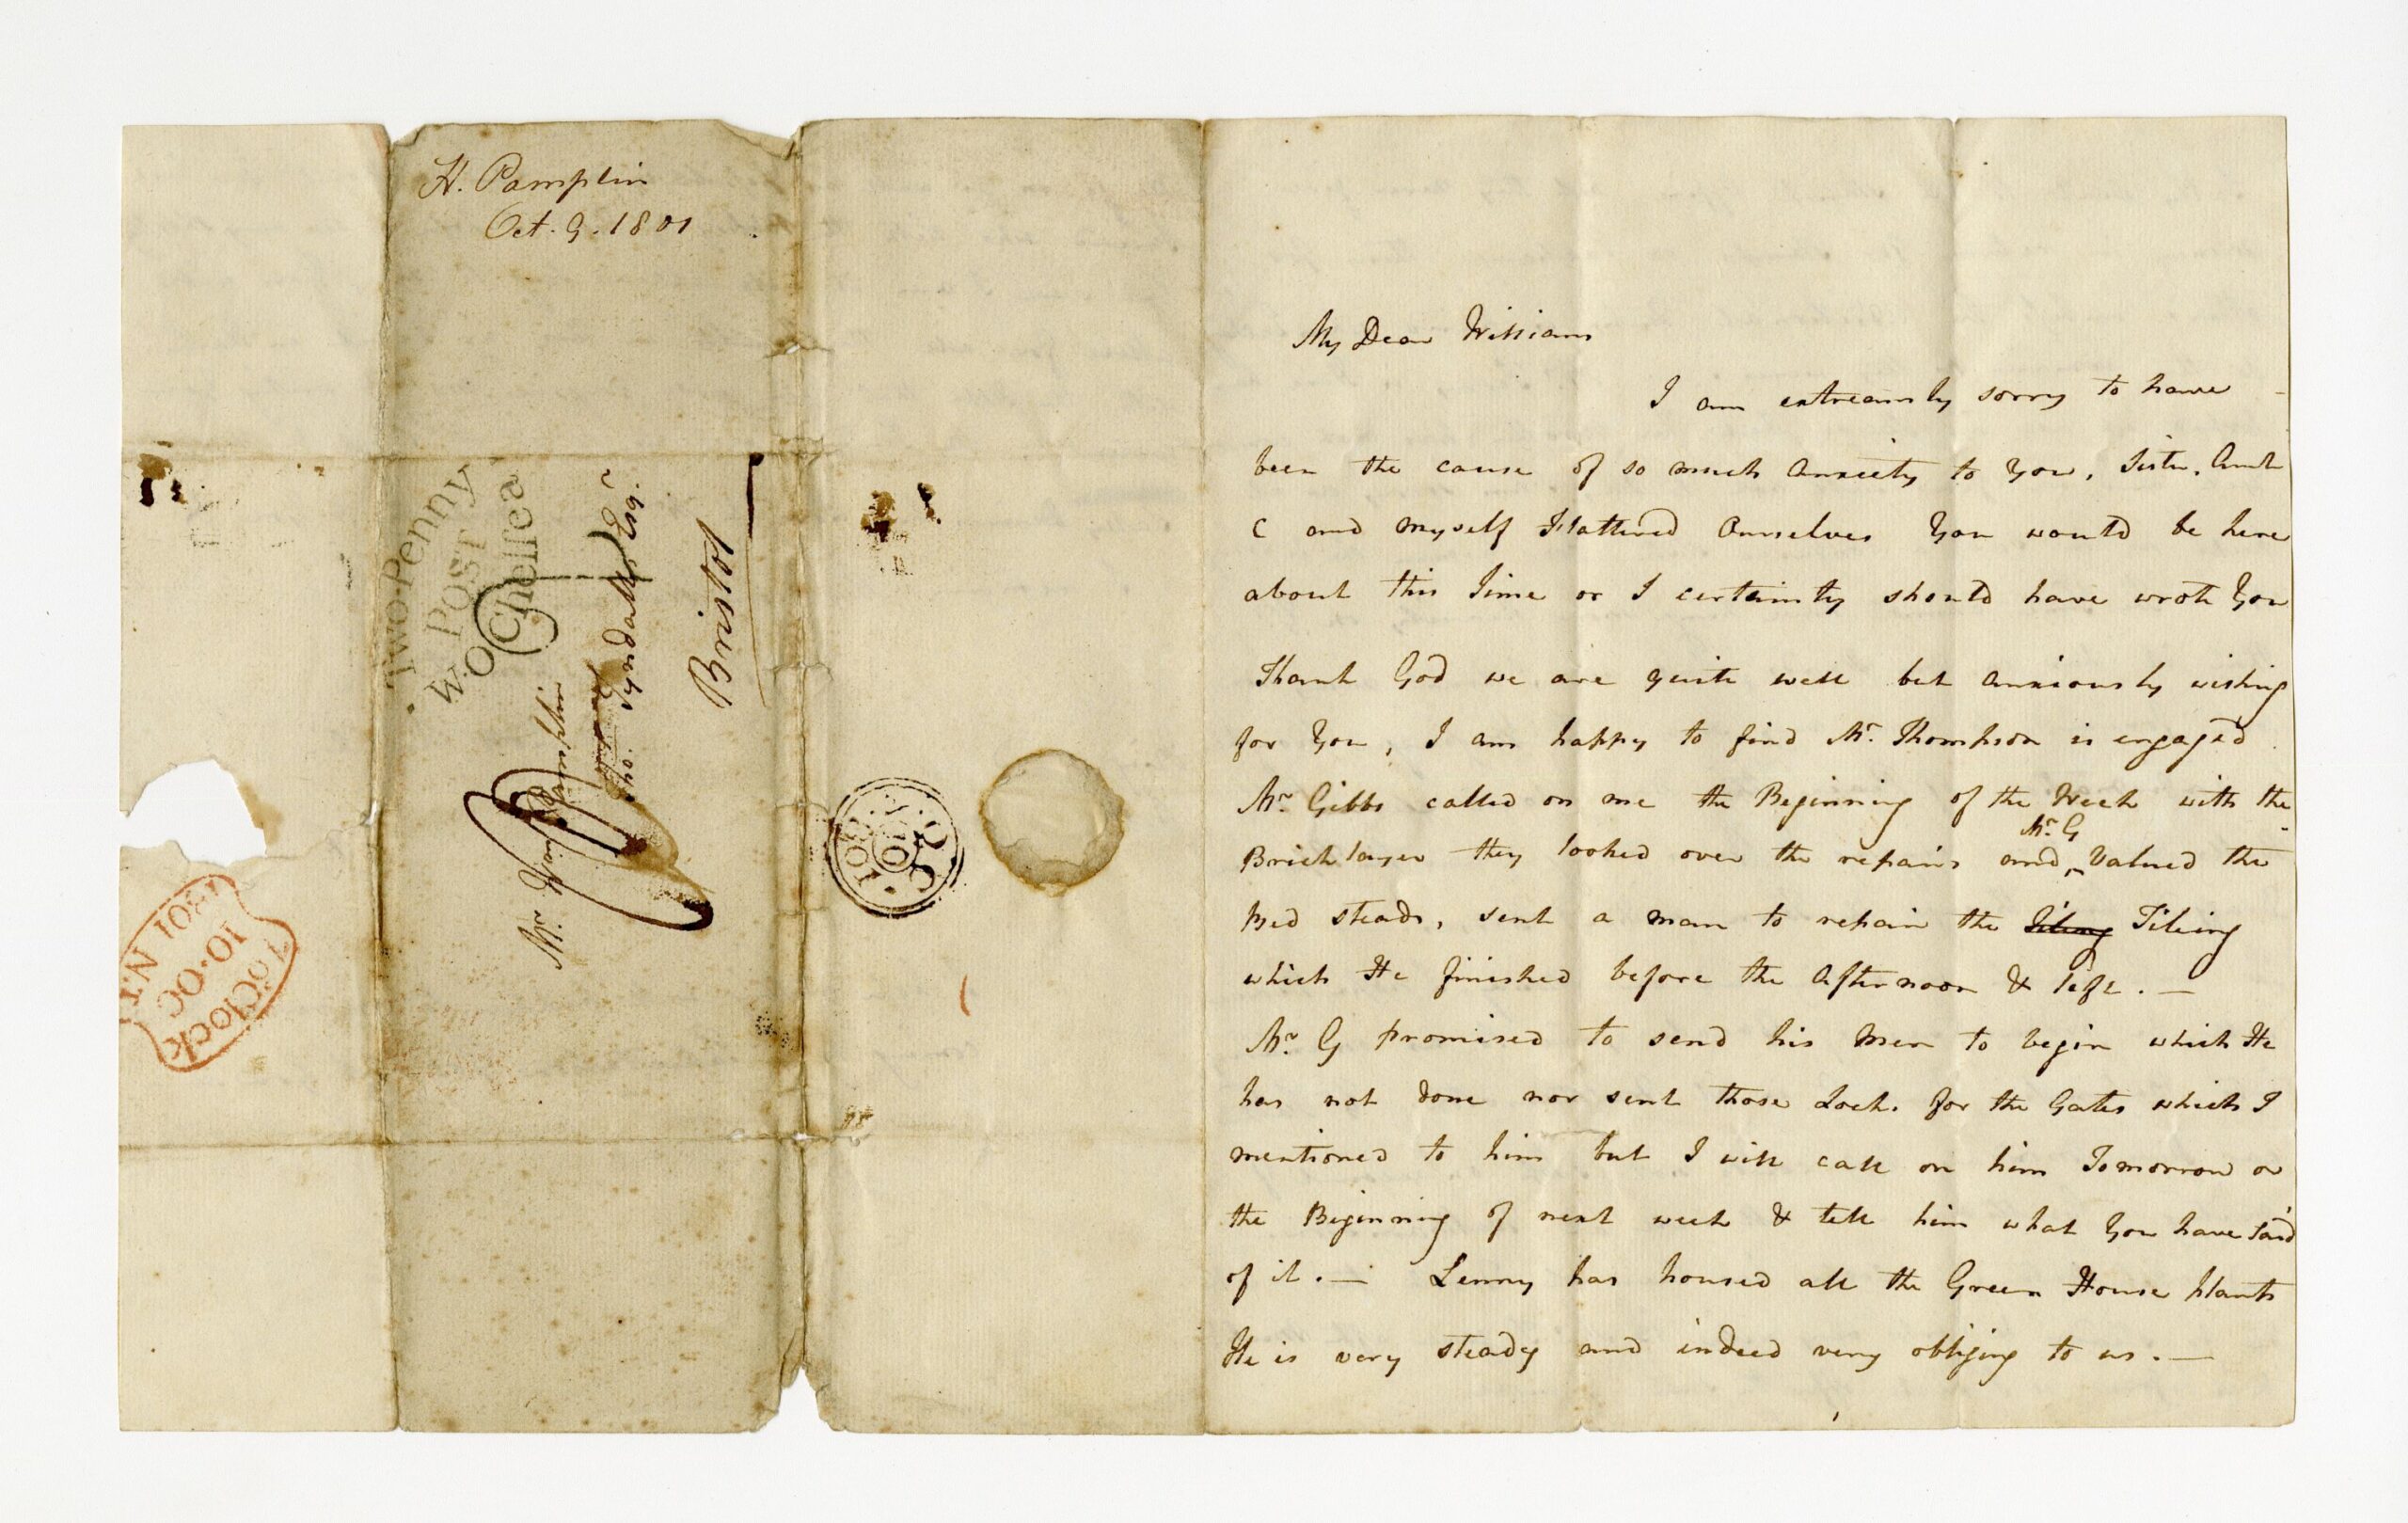 H. Pamplin
Oct. 9. 1801
Two-Penny
POST
W.O Chelsea
Mr. Wm. Pamplin
Tho. Tyndall Esqr.
Bristol
7o'Clock
10.OC
1801 N.T
OC
10
801
My Dear William
I am extreamly sorry to have
been the cause of so much Anxiety to You, Sister, Aunt
C and myself Flattered Ourselves You would be here
about this Time or I certainly should have wrote You
Thank God we are quite well but Anxiously wishing
for You, I am happy to find Mr. Thompson is engaged
Mr. Gibbs called on me the Beginning of the Week with the
Bricklayer they looked over the repairs and Mr. G Valued the
Bed steads, sent a man to repair the Tileing Tileing
which He finished before the Afternoon & left. —
Mr. G promised to send his Men to begin which He
has not done nor sent those Locks for the Gates which I
mentioned to him but I will call on him Tomorrow or
the Beginning of next week & tell him what You have said
of it. — Lenny has housed all the Green House plants
He is very steady and indeed very obliging to us. —